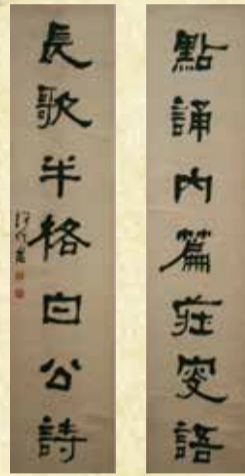 點誦內篇莊叟語
長歌半格白公詩